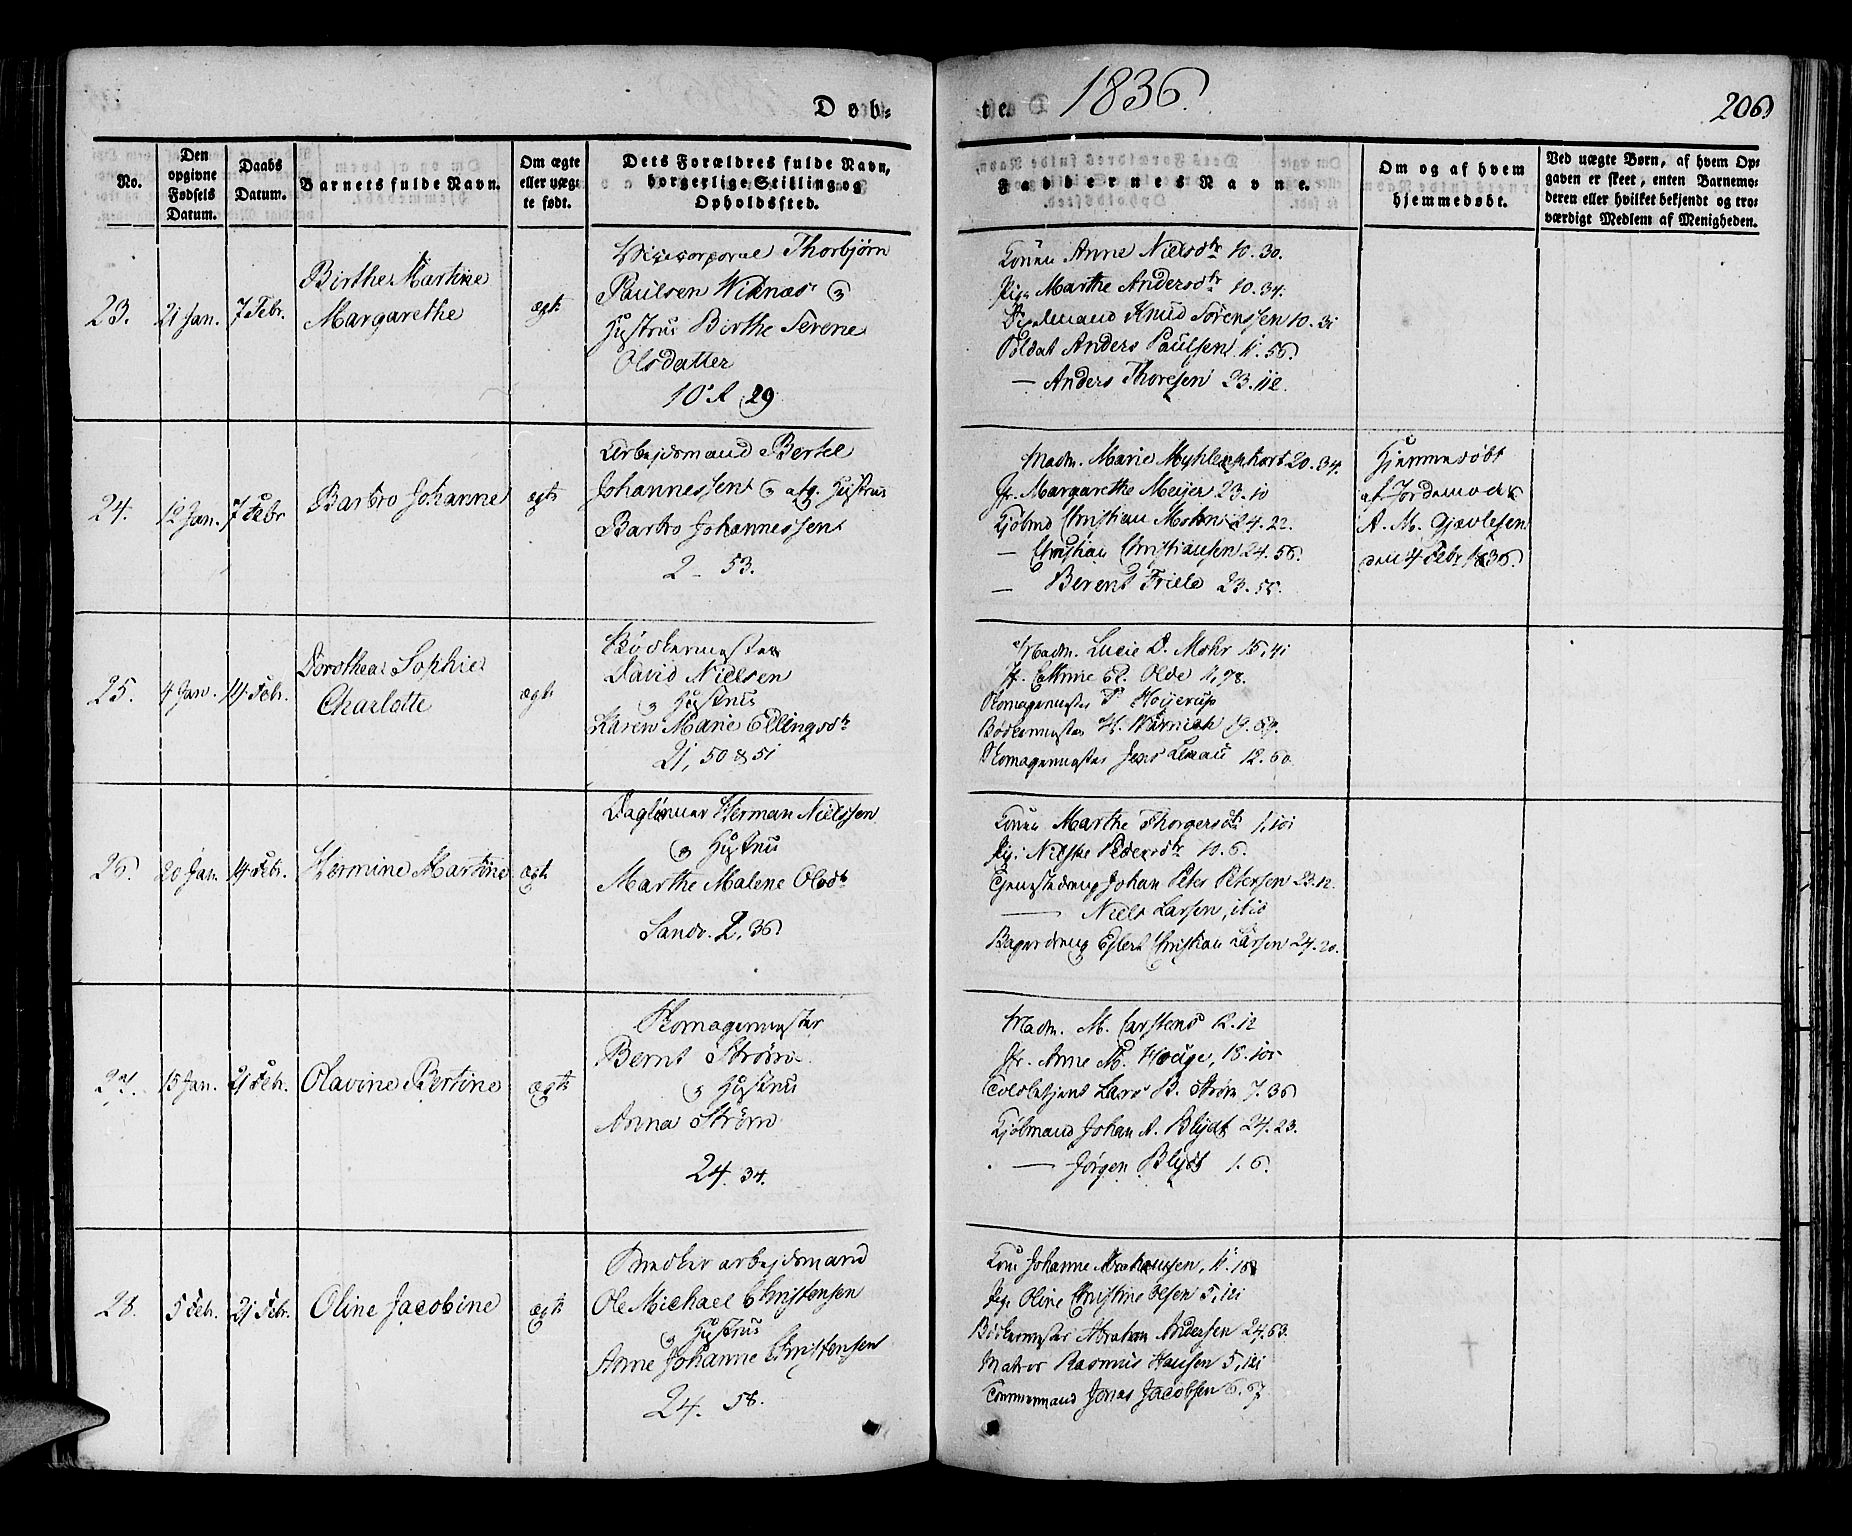 Døb-
te
1836.
206
No.
Den opgivne Fødsels Datum.
Daabs Datum.
Barnets fulde Navn.
Om ægte eller uægte født.
Dets Forældres fulde Navn, borgerlige Stilling og Opholdssted.
Faddernes Navne.
Om og af hvem hjemmedøbt.
Ved uægte Børn, af hvem Opgaven er skeet, enten Barnemoderen eller hvilket bekjendt og troværdigt Medlem af Menigheden.
23.
21 Jan.
7 Febr.
Birthe Martine
Margarethe
ægte
Thorbjørn
Paulsen Widnæs
Hustrue Birthe Serene
Olsdatter
10 R 29
Konen Anne Nielsdtr 10.30.
Pig. Marthe Andersdtr 10.34.
Knud Sørenssen 10.31
Soldat Anders Paulsen 11.56.
— Anders Thoresen 23.112.
24.
12 Jan.
7 Febr
Barbro Johanne
ægte
Arbejdsmand Bertel
Johannessen og afg. Hustrue
Barbro Johannessen
2 - 53.
Madm. Marie Myhlenphort 20.34.
Jfr. Margarethe Meijer 23.10
Kjøbmd Christian Mohn 24.22.
— Christian Christiansen 24.56.
— Berent Friele 23.55.
Hjemmedøbt
af Jordemoder
A. M. Gjævlesen
den 4 Febr 1836.
25.
4 Jan.
14 Febr.
Dorothea Sophie
Charlotte
ægte
Bødkermester
David Nielsen
og Hustrue
Karen Marie Ellingsdtr
21, 50 & 51
Madm. Lucie D. Mohr 15,41
Jf. Cathrine El. Olde 1,98.
Skomagermester P Høyerup
Bødkermester H. Wernich 9.59.
Skomagermester Jens Lexau 12.60
26.
20 Jan.
14 Febr.
Hermine Martine
ægte
Daglønner Herman Nielssen
og Hustrue
Marthe Malene Olsdtr
Sandv. 2, 36
Konen Marthe Thorgersdtr 1,101
Pig. Nilske Pedersdtr 10.6.
Tjenestedreng Johan Peter Petersen 23.12.
— Niels Larsen, ibid
Bagerdreng Eilert Christian Larsen 24.20.
27.
15 Jan.
21 Febr.
Olavine Bertine
ægte
Skomagermester
Bernt Strøm
og Hustrue
Anna Strøm
24. 34.
Madm. M. Carstens 12.12
Jfr. Anne M. Houge, 18.105
Toldbetjent Lars B. Strøm 7.36
Kjøbmand Johan A. Blijdt 24.23.
— Jørgen Blijdt 1.6.
28.
5 Febr.
21 Febr.
Oline Jacobine
ægte
arbejdsmand
Ole Michael Christensen
og Hustrue
Anne Johanne Christensen
24. 58.
Kone Johanne Abrahamsen, 11.108
Pig. Oline Christine Olsen 5,121
Bødkermester Abraham Andersen 24.63.
Matros Rasmus Hansen 5,121
Tømmermand Jonas Jacobsen 6.67